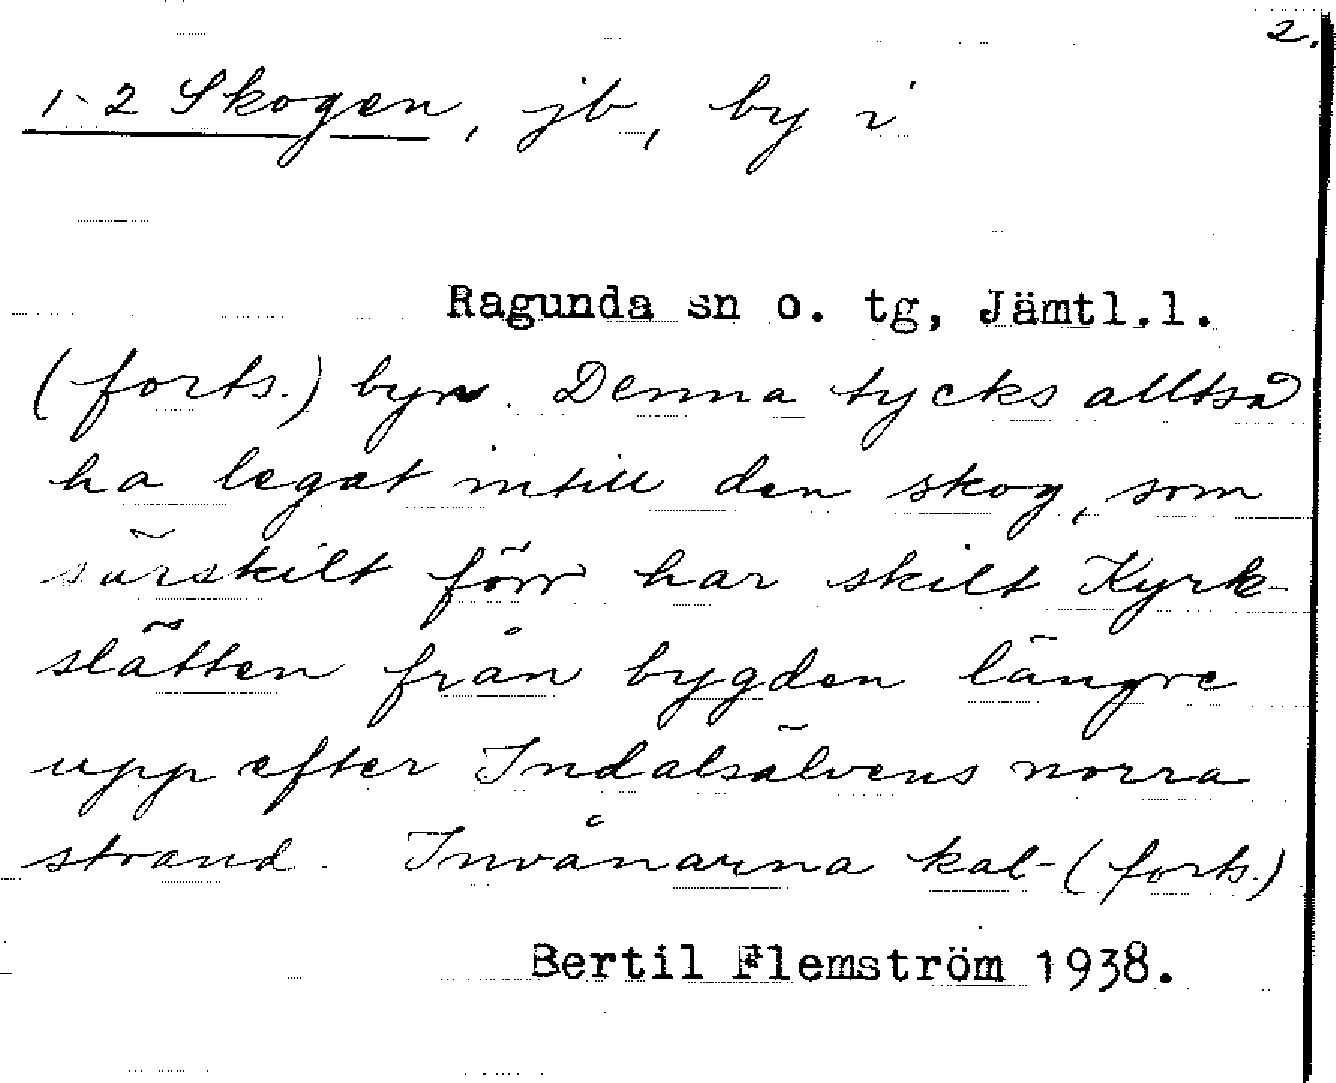 2.
1-2 Skogen, jb, by i
Ragunda sn o. tg, Jämtl.l.
(forts.) byn. Denna tycks alltså
ha legat intill den skog, som
särskilt förr har skilt Kyrk-
slätten från bygden längre
upp efter Indalsälvens norra
strand. Invånarna kal- (forts.)
Bertil Flemström 1938.